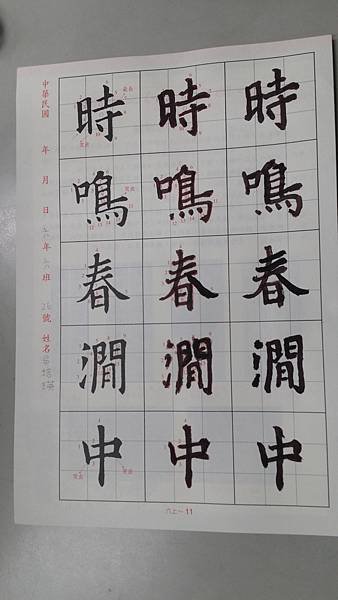 時時時
鳴鳴鳴
春春春
澗澗澗
中中中
中華民國 年 月 日 六年六班 26號 姓名
六上-11